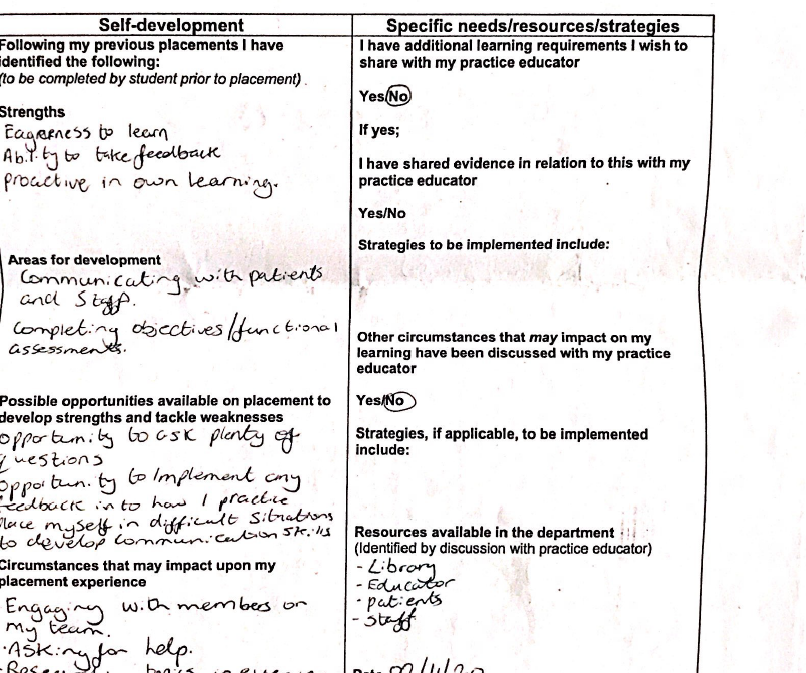 Self-development
Following my previous placements I have
identified the following:
(to be completed by student prior to placement)
Strengths
Eagerness to learn
Ability to take feedback
proactive in own learning.
Areas for development
Communicating with patients
and Staff.
Completing objectives/functional
assessments.
Possible opportunities available on placement to
develop strengths and tackle weaknesses
opportunity to ask plenty of
questions
opportunity to Implement any
feedback in to how I practice
Place myself in difficult Situations
to develop communication skills
Circumstances that may impact upon my
placement experience
Engaging with members on
my team.
·Asking for help.
Specific needs/resources/strategies
I have additional learning requirements I wish to
share with my practice educator
Yes/No
If yes;
I have shared evidence in relation to this with my
practice educator
Yes/No
Strategies to be implemented include:
Other circumstances that may impact on my
learning have been discussed with my practice
educator
Yes/No
Strategies, if applicable, to be implemented
include:
Resources available in the department
(Identified by discussion with practice educator)
- Library
- Educator
- patients
- Staff
Date